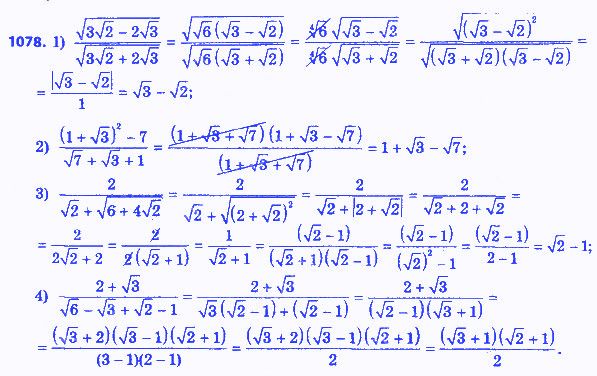 1078. 1) √(3√2 − 2√3) / √(3√2 + 2√3) = √(√6(√3 − √2)) / √(√6(√3 + √2)) = ⁴√6 √(√3 − √2) / ⁴√6 √(√3 + √2) = √((√3 − √2)²) / √((√3 + √2)(√3 − √2)) =
= |√3 − √2| / 1 = √3 − √2;
2) ((1 + √3)² − 7) / (√7 + √3 + 1) = (1 + √3 + √7)(1 + √3 − √7) / (1 + √3 + √7) = 1 + √3 − √7;
3) 2 / (√2 + √(6 + 4√2)) = 2 / (√2 + √((2 + √2)²)) = 2 / (√2 + |2 + √2|) = 2 / (√2 + 2 + √2) =
= 2 / (2√2 + 2) = 2 / (2(√2 + 1)) = 1 / (√2 + 1) = (√2 − 1) / ((√2 + 1)(√2 − 1)) = (√2 − 1) / ((√2)² − 1) = (√2 − 1) / (2 − 1) = √2 − 1;
4) (2 + √3) / (√6 − √3 + √2 − 1) = (2 + √3) / (√3(√2 − 1) + (√2 − 1)) = (2 + √3) / ((√2 − 1)(√3 + 1)) =
= (√3 + 2)(√3 − 1)(√2 + 1) / ((3 − 1)(2 − 1)) = (√3 + 2)(√3 − 1)(√2 + 1) / 2 = (√3 + 1)(√2 + 1) / 2.